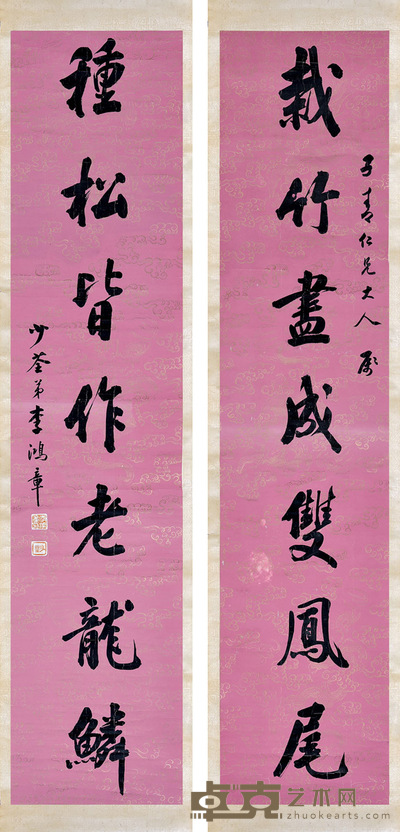 栽竹盡成雙鳳尾
子青仁兄大人屬
種松皆作老龍鱗
少荃弟李鴻章
卓克艺术网
www.zhuokearts.com